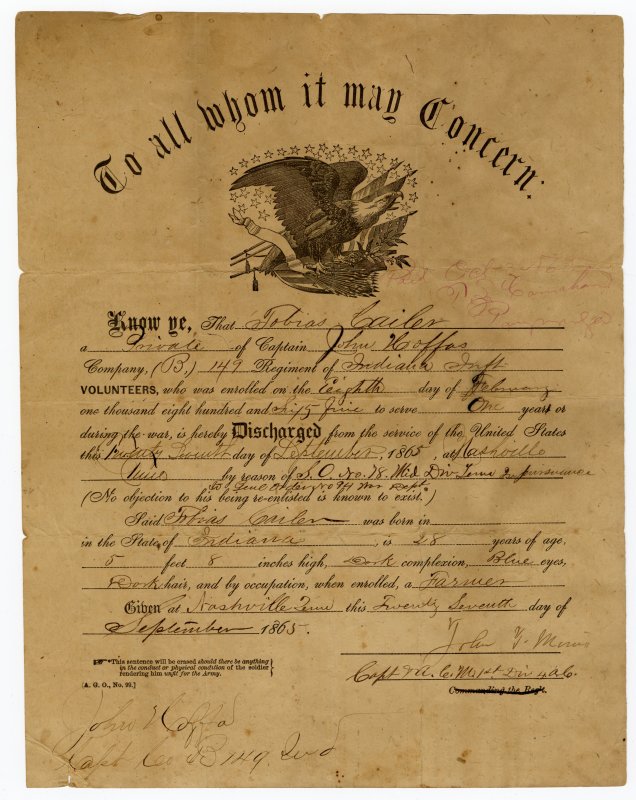 To all whom it may Concern:
Know ye, That Tobias Cailer
a Private of Captain John Hoffas
Company, (B,) 149 Regiment of Indiana Inft
VOLUNTEERS, who was enrolled on the Eighth day of February
one thousand eight hundred and sixty five to serve One years or
during the war, is hereby Discharged from the service of the United States
this Twenty Seventh day of September, 1865, at Nashville
Tenn by reason of S. O. No. 78. Mid Div Tenn in pursuance
of Genl Orders No 94 War Dept
(No objection to his being re-enlisted is known to exist.)
Said Tobias Cailer was born in
in the State of Indiana, is 28 years of age,
5 feet 8 inches high, Dark complexion, Blue eyes,
Dark hair, and by occupation, when enrolled, a Farmer
Given at Nashville Tenn this Twenty Seventh day of
September 1865.
John
Capt & A. C. M. 1st Div 4 A.C.
Commanding the Reg't.
This sentence will be erased should there be anything
in the conduct or physical condition of the soldier
rendering him unfit for the Army.
[A. G. O., No. 99.]
John Hoffa
Capt Co B 149 Ind